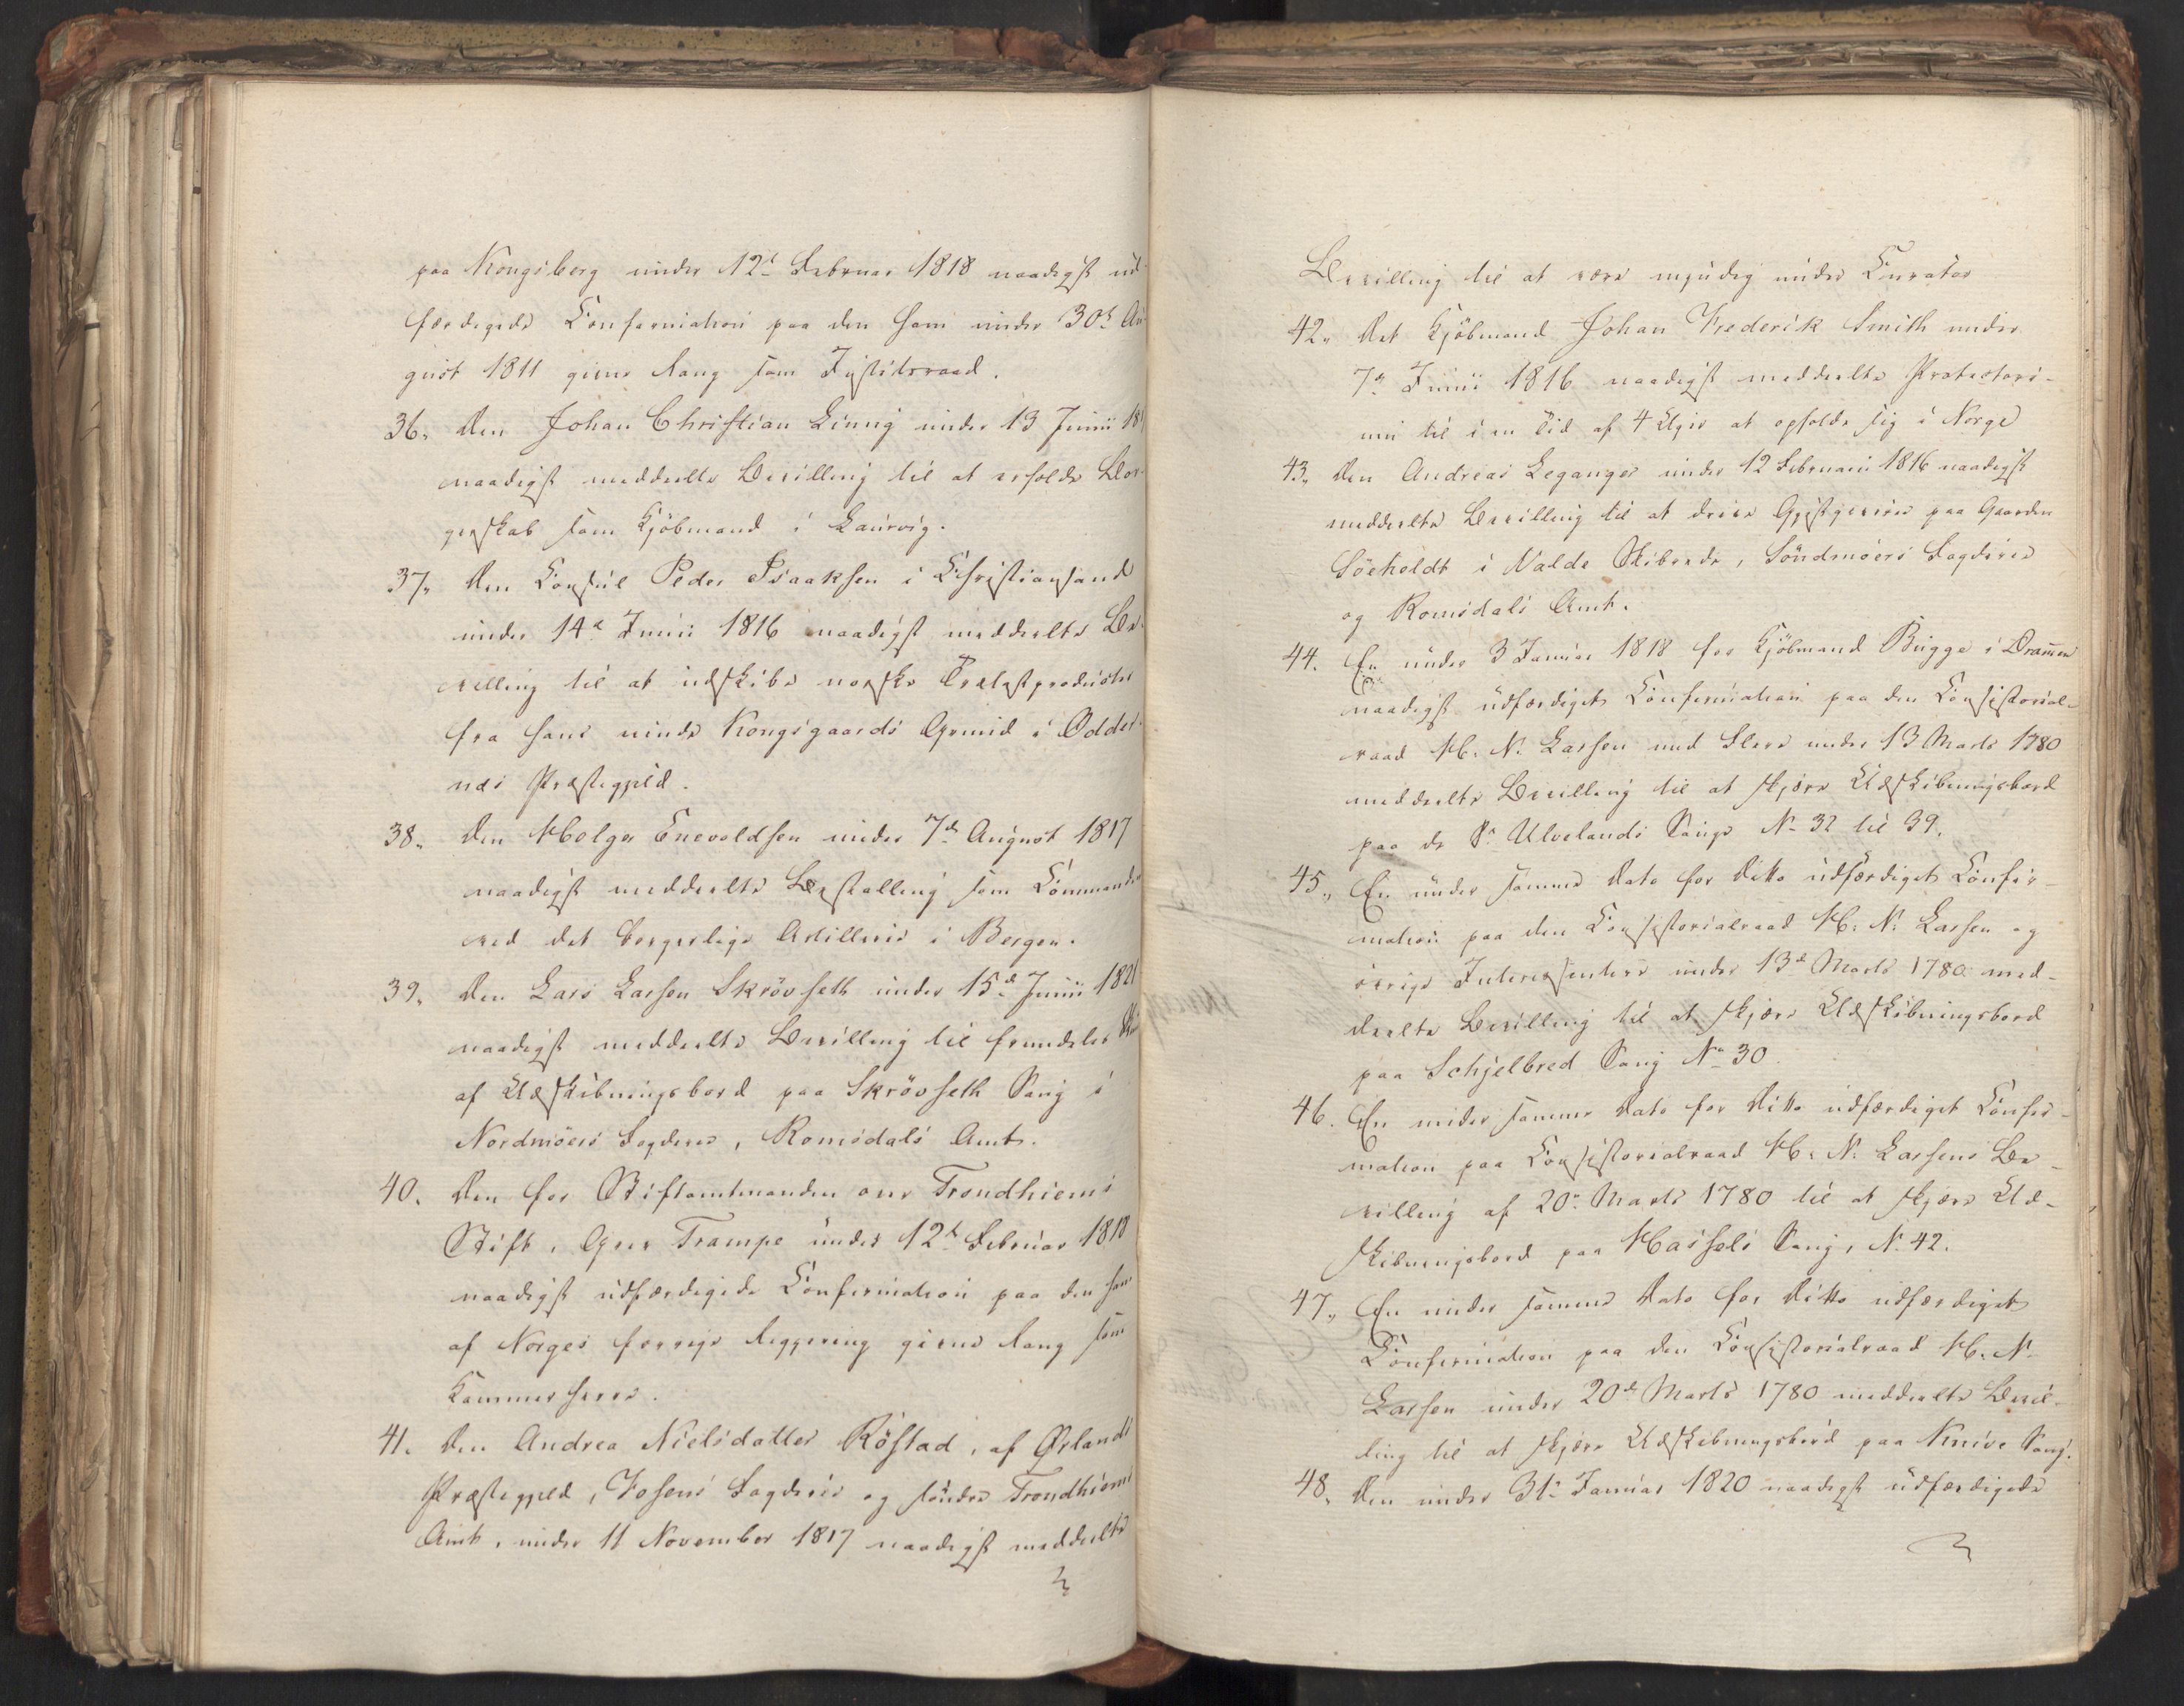 paa Kongsberg under 12t Februar 1818 naadigst ud-
færdigede Confirmation paa den ham under 30t Au-
gust 1811 givne Rang som Justitsraad.
36, Den Johan Christian Linnig under 13 Junii 18
naadigst meddeelte Bevilling til at erholde Bor-
gerskab som Kjöbmand i Laurvig.
37, Den Consul Peder Isaaksen i Christiansand
under 14d Junii 1816 naadigst meddeelte Be-
villing til at udskibe norske Trælastproducter
fra hans iinde Kongsgaards Grund i Odder-
næs Præstegjeld.
38, Den Holger Enevoldsen under 7de August 1817
naadigst meddeelte Bestalling som Commandeur
ved det borgerlige Artillerie i Bergen.
39, Den Lars Larsen Skrövseth under 15d Junii 1821
naadigst meddeelte Bevilling til fremdeles
af Udskibningsbord paa Skrövseth Saug i
Nordmöers Fogderie, Romsdals Amt.
40. Den for Stiftamtmanden over Trondhiems
Stift, Grev Trampe under 12t Februar 1818
naadigst udfærdigede Confirmation paa den ham
af Norges forrige Regjering givne Rang som
Kammerherre.
41. Den Andrea Nielsdatter Röstad, af Ørlands
Præstegjeld, Fosens Fogderie og söndre Trondhiems
Amt, under 11 November 1817 naadigst meddeelte
Bevilling til at være myndig under Curator
42, Det Kjöbmand Johan Frederik Smith under
7d Junii 1816 naadigst meddeelte Protectori-
um til i en Tid af 4 Uger at opholde sig i Norge
43, Den Andreas Leganger under 12 Februarii 1816 naadigst
meddeelte Bevilling til at drive Gjestgiverie paa Gaarden
Söeholdt i Valde Skibrede, Söndmöers Fogderie
og Romsdals Amt.
44. En under 3 Januar 1818 for Kjöbmand Bugge i Dram̄en
naadigst udfærdiget Confirmation paa den Consistorial-
raad H. N. Lassen med Flere under 13 Marts 1780
meddeelte Bevilling til at skjære Udskibningsbord
paa de Ulvelands Sauge No 32 til 39.
45, En under samme Dato for Ditto udfærdiget Confir-
mation paa den Consistorialraad H. N. Lassen og
övrige Interessentere under 13d Marts 1780 med-
deelte Bevilling til at skjære Udskibningsbord
paa Schjelbred Saug No 30.
46. En under samme Dato for Ditto udfærdiget Confir-
mation paa Consistorialraad H. N. Lassens Be-
villing af 20de Marts 1780 til at skjære Ud-
skibningsbord paa Hassels Saug, N. 42.
47, En under samme Dato for Ditto udfærdiget
Confirmation paa den Consistorialraad H. N.
Lassen under 20d Marts 1780 meddeelte Bevil-
ling til at skjære Udskibningsbord paa Knive Saug.
48, Den under 31t Januar 1820 naadigst udfærdigede